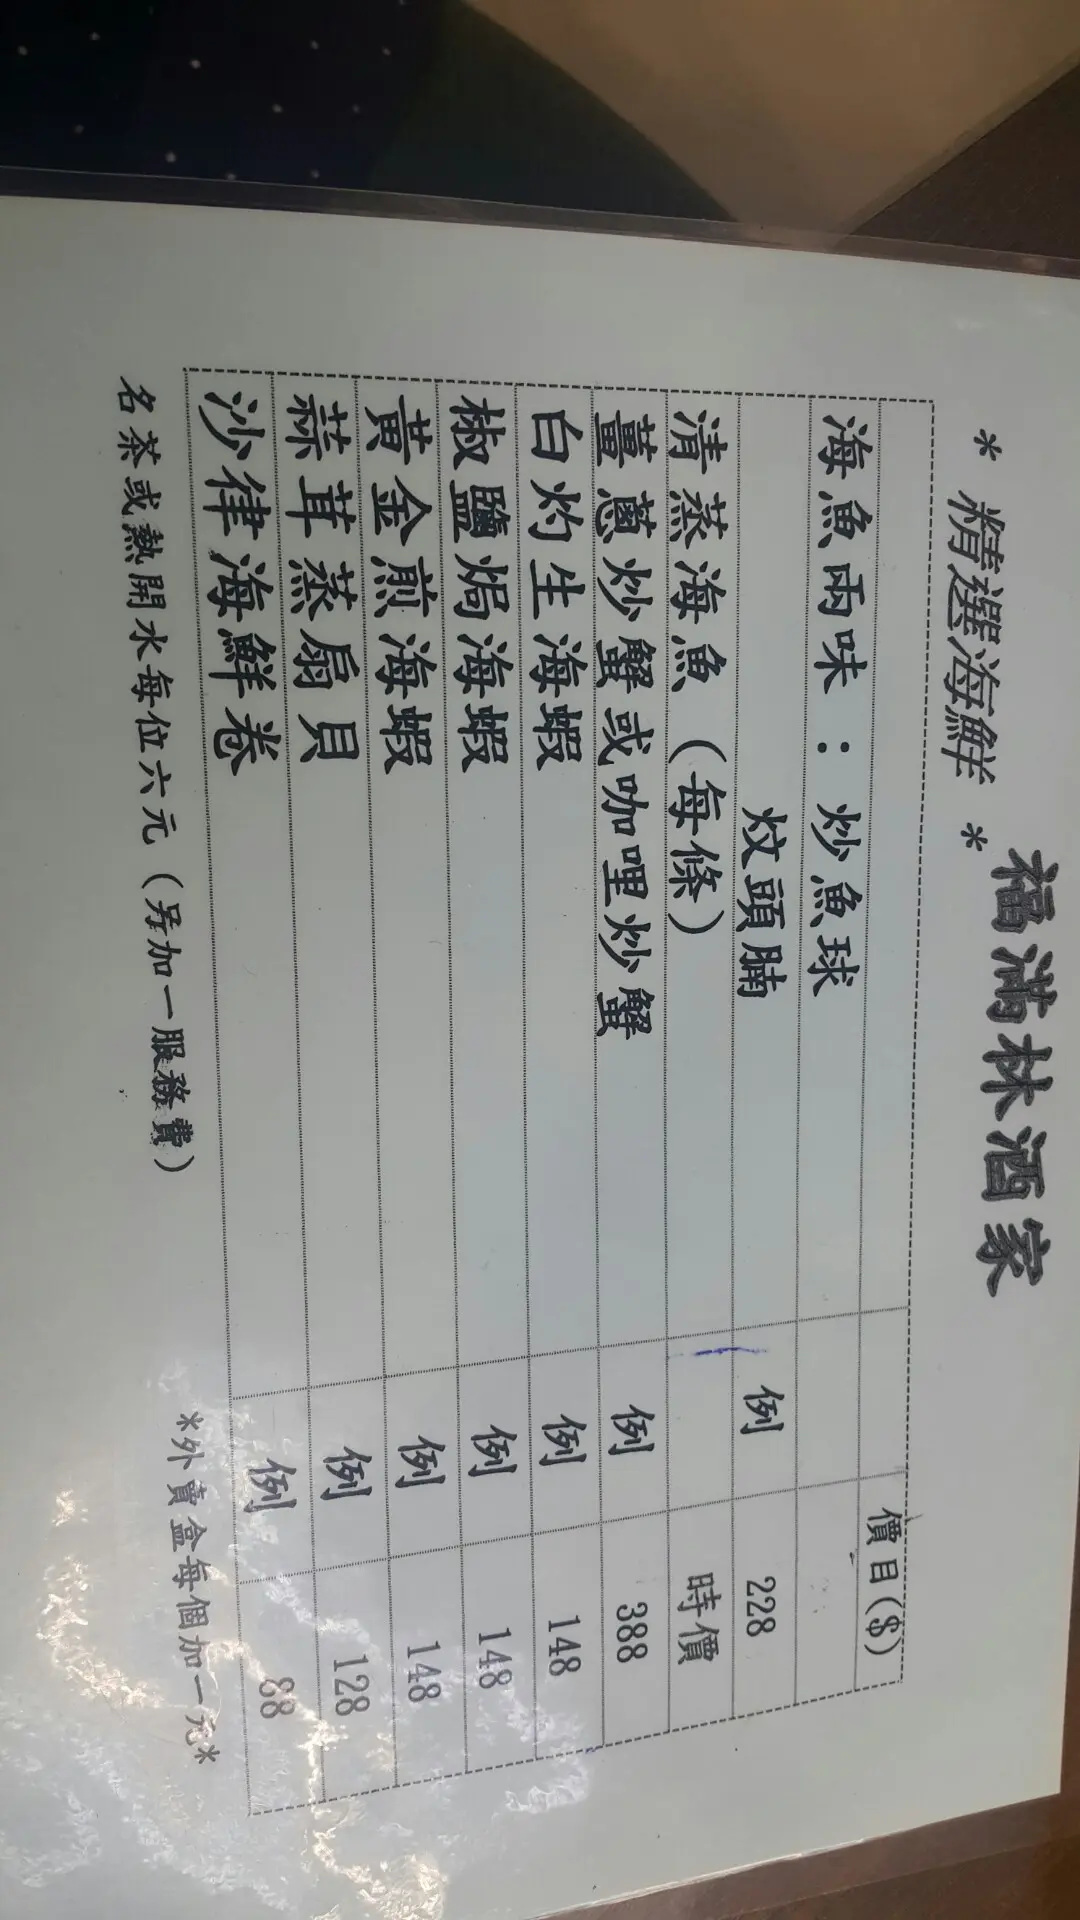 福滿林酒家
* 精選海鮮 *
價目($)
海魚兩味 : 炒魚球
炆頭腩 例 228
清蒸海魚 (每條) 時價
薑蔥炒蟹或咖哩炒蟹 例 388
白灼生海蝦 例 148
椒鹽焗海蝦 例 148
黃金煎海蝦 例 148
蒜茸蒸扇貝 例 128
沙律海鮮卷 例 88
名茶或熱開水每位六元 (另加一服務費) *外賣盒每個加一元*